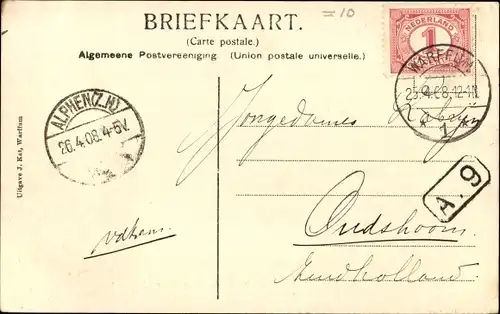 =10
BRIEFKAART.
(Carte postale.)
Algemeene Postvereeniging (Union postale universelle.)
NEDERLAND
1
WARFFUM
25.4.08.12-1N
* 1 *
ALPHEN(Z.H.)
26.4.08.4-5V.
Jongedames
A.9
Oudshoorn
Zuidholland.
Uitgave J. Kat, Warffum